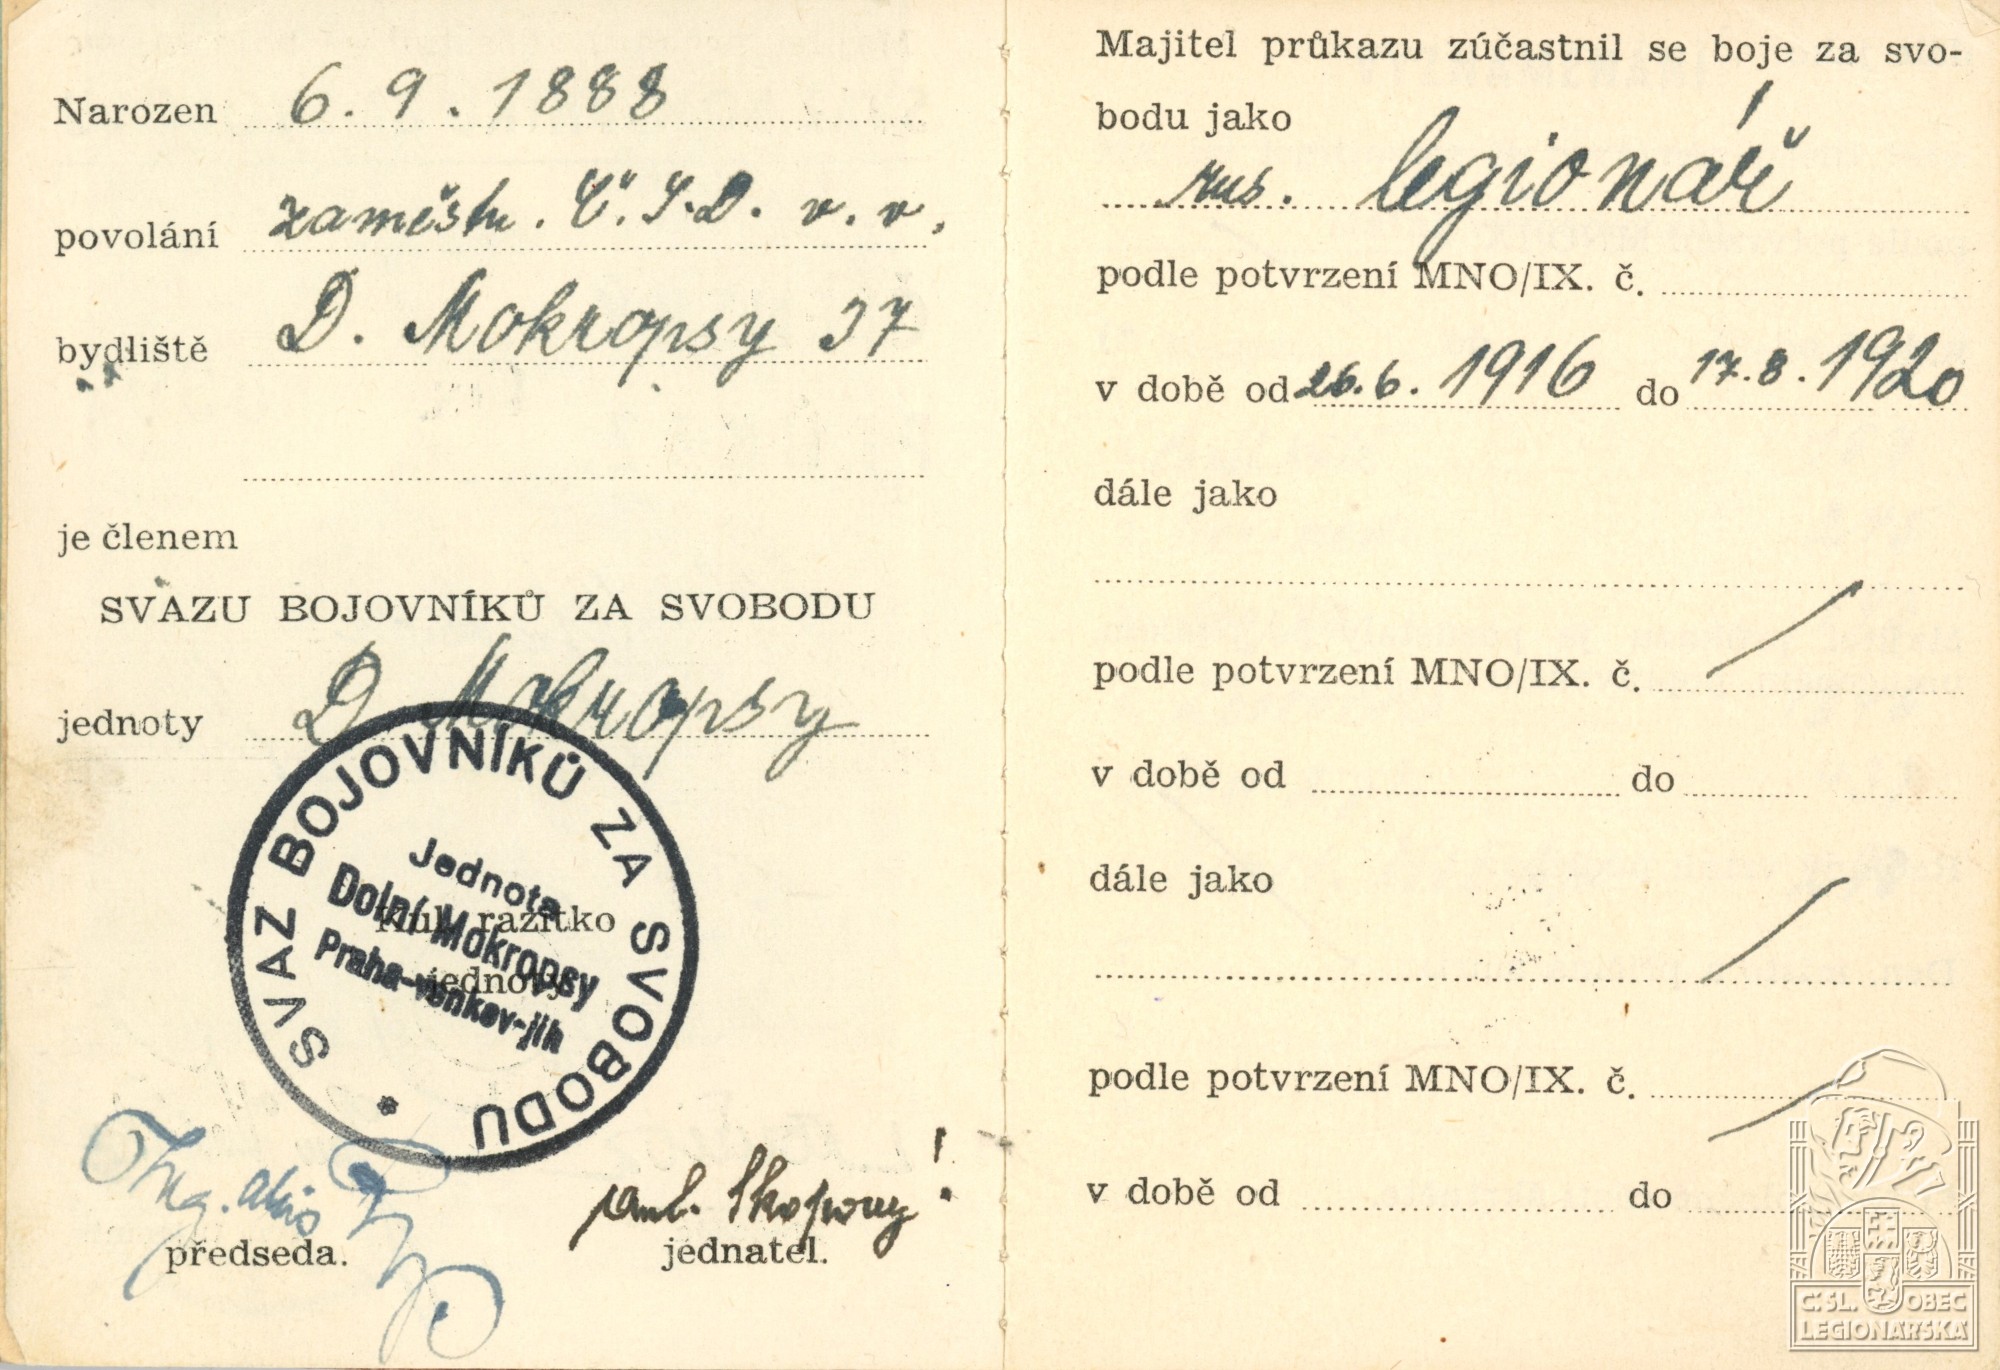 Narozen 6. 9. 1888
povolání zaměstn. Č.S.D. v. v.
bydliště D. Mokropsy 37
je členem
SVAZU BOJOVNÍKŮ ZA SVOBODU
jednoty D. Mokropsy
SVAZ BOJOVNÍKŮ ZA SVOBODU
Jednota
Dolní Mokropsy
Praha-venkov-jih
Kul. razítko
jednoty
Ing. Alois
předseda.
jednatel.
Majitel průkazu zúčastnil se boje za svo-
bodu jako
rus. legionář
podle potvrzení MNO/IX. č.
v době od 26. 6. 1916 do 17. 8. 1920
dále jako
podle potvrzení MNO/IX. č.
v době od do
dále jako
podle potvrzení MNO/IX. č.
v době od do
Č. SL. OBEC
LEGIONÁŘSKÁ